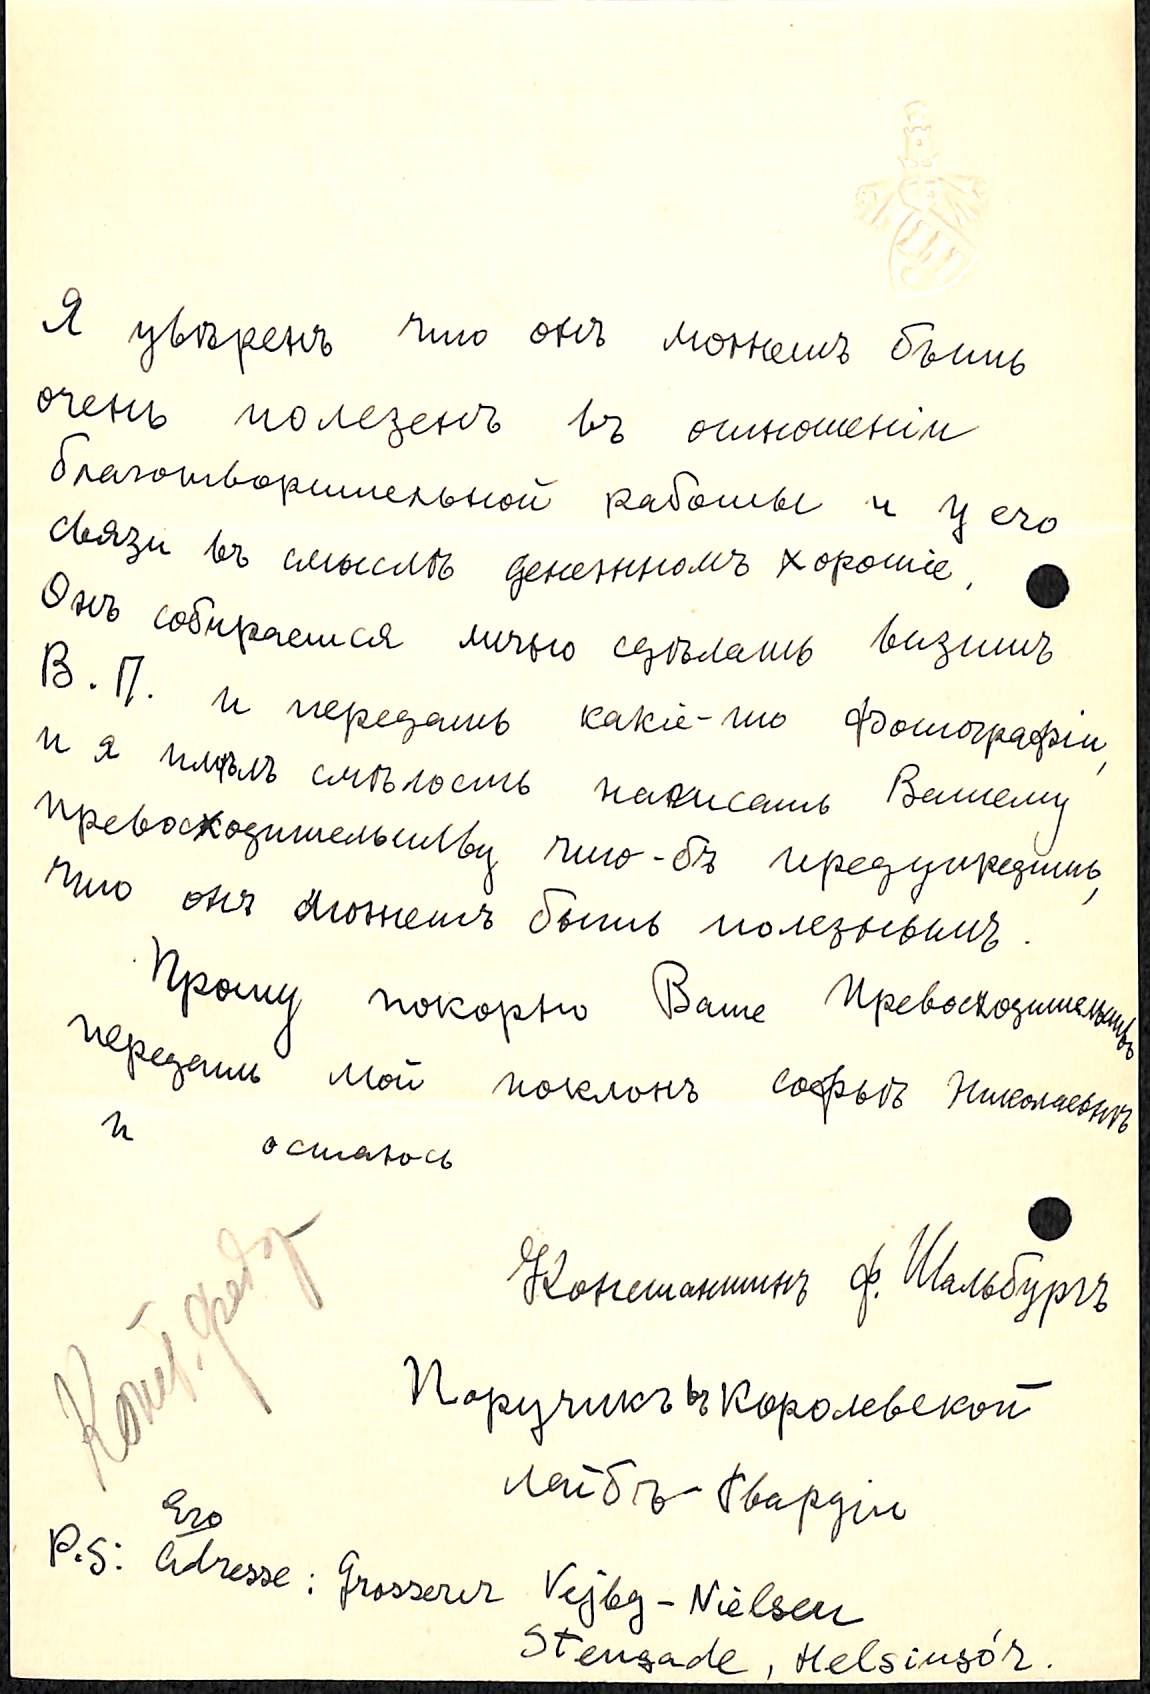 Я увѣренъ что онъ можетъ быть
очень полезенъ въ отношеніи
благотворительной работы и у его
связи въ смыслѣ денежномъ хорошіе.
Онъ собирается лично сдѣлать визитъ
В. П. и передать какіе-то фотографіи,
и я имѣлъ смѣлость написать Вашему
превосходительству что-бъ предупредить,
что онъ можетъ быть полезнымъ.
Прошу покорно Ваше Превосходительство
передать мой поклонъ Софьѣ Николаевнѣ
и остаюсь
Константинъ ф. Шальбургъ
Поручикъ въ Королевской
лейбъ-Гвардіи
Его
P.S: Adresse: Grosserer Vejby-Nielsen
Stengade, Helsingör.